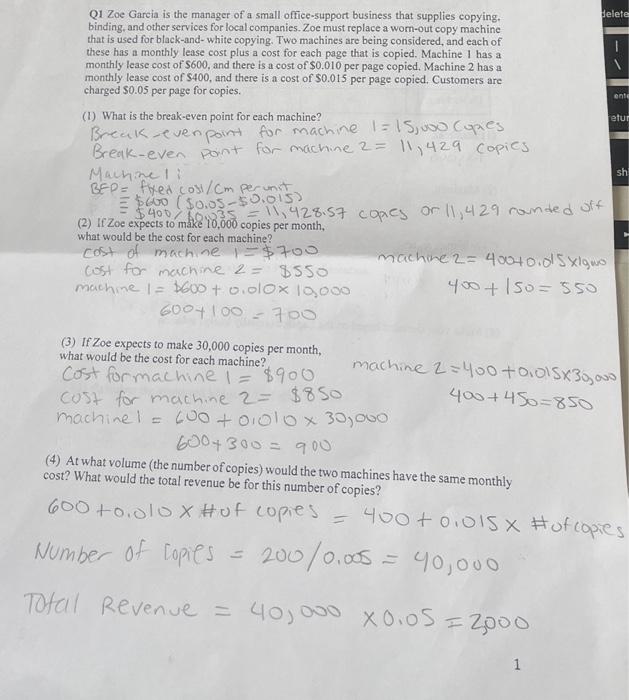 Q1 Zoe Garcia is the manager of a small office-support business that supplies copying,
binding, and other services for local companies. Zoe must replace a worn-out copy machine
that is used for black-and- white copying. Two machines are being considered, and each of
these has a monthly lease cost plus a cost for each page that is copied. Machine 1 has a
monthly lease cost of $600, and there is a cost of $0.010 per page copied. Machine 2 has a
monthly lease cost of $400, and there is a cost of $0.015 per page copied. Customers are
charged $0.05 per page for copies.
(1) What is the break-even point for each machine?
Break-even point for machine 1 = 15,000 Copies
Break-even point for machine 2 = 11,429 copies
Machine 1:
BEP = fixed cost/Cm per unit
= $600 ($0.05-$0.015)
= $400/$0.035 = 11,428.57 copies or 11,429 rounded off
(2) If Zoe expects to make 10,000 copies per month,
what would be the cost for each machine?
cost of machine 1 = $700
cost for machine 2 = $550
machine 1 = $600 + 0.010 x 10,000
600+100 = 700
machine 2 = 400+0.015 x 10,000
400 + 150 = 550
(3) If Zoe expects to make 30,000 copies per month,
what would be the cost for each machine?
Cost for machine 1 = $900
cost for machine 2 = $850
machine 1 = 600 + 0.010 x 30,000
600+300 = 900
machine 2 = 400 + 0.015 x 30,000
400+450=850
(4) At what volume (the number of copies) would the two machines have the same monthly
cost? What would the total revenue be for this number of copies?
600 + 0.010 x # of copies = 400 + 0.015 x # of copies
Number of Copies = 200/0.005 = 40,000
Total Revenue = 40,000 x 0.05 = 2,000
1
delete
\
ente
etur
sh